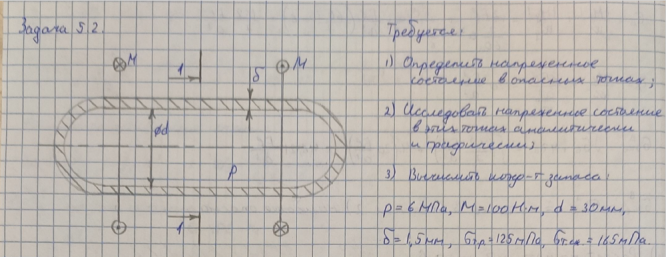 Задача 5.2.
M
M
1
δ
⌀d
P
1
Требуется:
1) Определить напряженное
состояние в опасных точках;
2) Исследовать напряженное состояние
в этих точках аналитически
и графически;
3) Вычислить коэф-т запаса:
P = 6 МПа, M = 100 Н·м, d = 30 мм,
δ = 1,5 мм, σт.р. = 125 МПа, σт.сж. = 165 МПа.